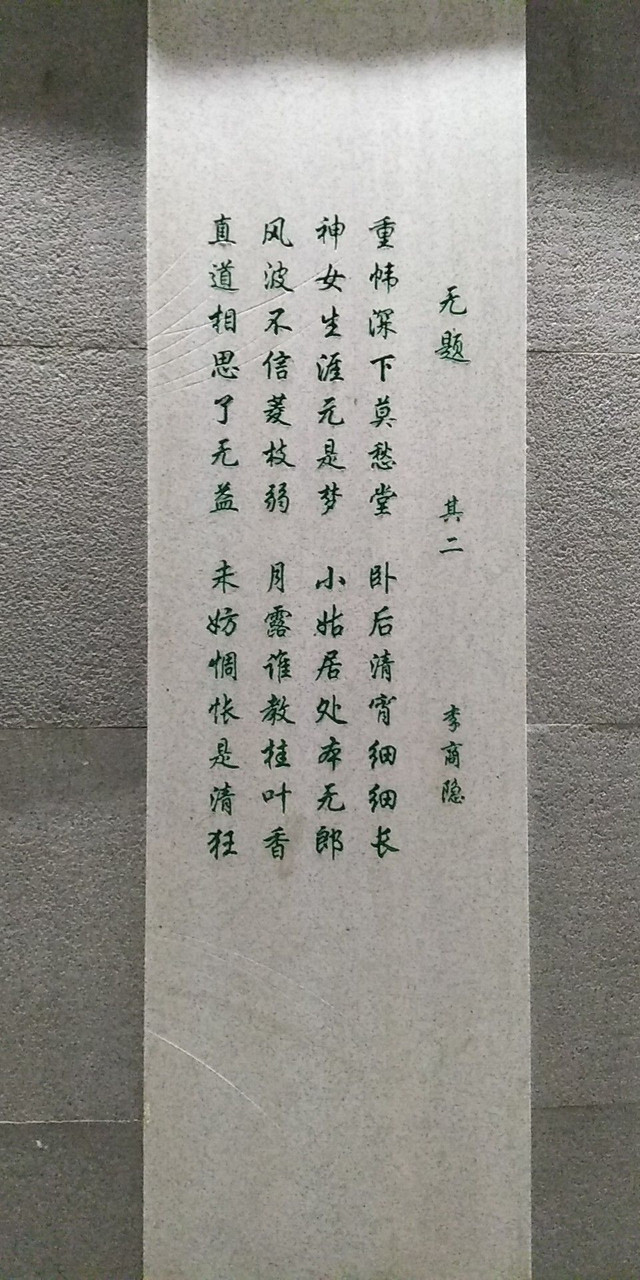 无题 其二 李商隐
重帏深下莫愁堂 卧后清宵细细长
神女生涯元是梦 小姑居处本无郎
风波不信菱枝弱 月露谁教桂叶香
直道相思了无益 未妨惆怅是清狂